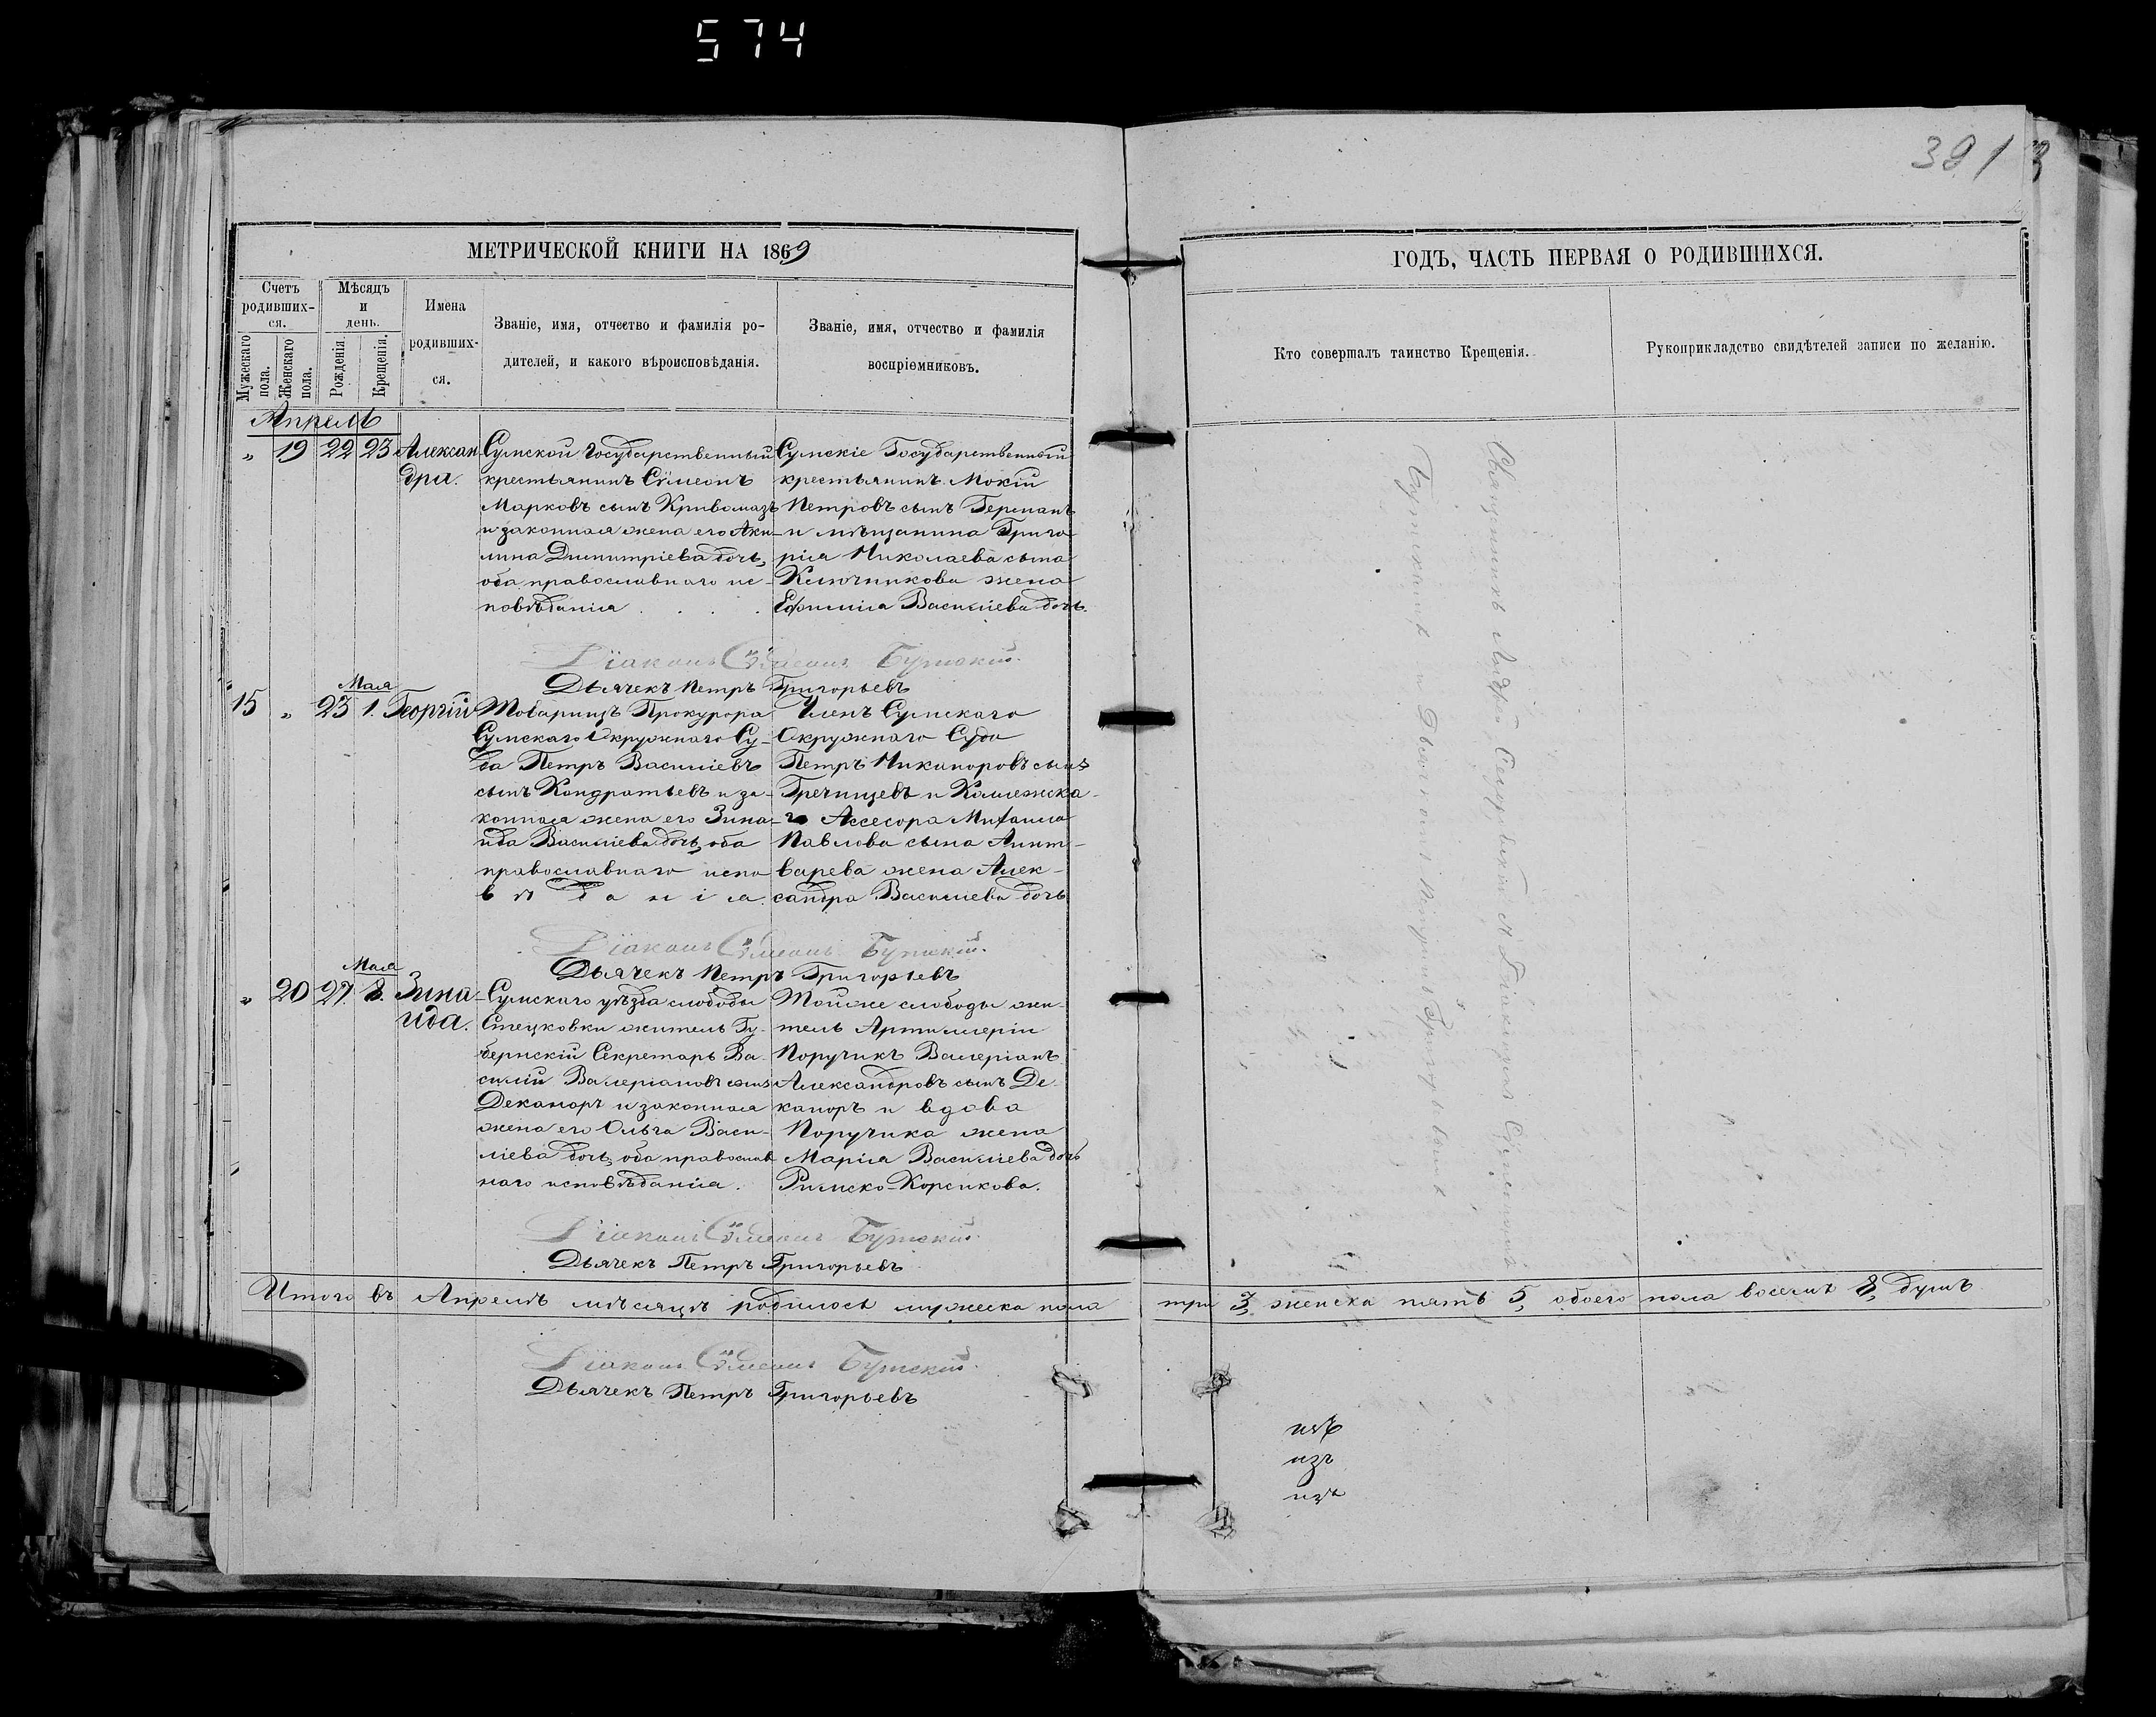 574
391
МЕТРИЧЕСКОЙ КНИГИ НА 1869
ГОДЪ, ЧАСТЬ ПЕРВАЯ О РОДИВШИХСЯ.
Счетъ
родивших-
ся.
Мужескаго
пола.
Женскаго
пола.
Мѣсяцъ
и
день.
Рожденія.
Крещенія.
Имена
родивших-
ся.
Званіе, имя, отчество и фамилія ро-
дителей, и какого вѣроисповѣданія.
Званіе, имя, отчество и фамилія
воспріемниковъ.
Кто совершалъ таинство Крещенія.
Рукоприкладство свидѣтелей записи по желанію.
Апрель
„ 19 22 23 Алексан
дра.
Сумской Государственный
крестьянинъ Сѵмеонъ
Марковъ сынъ Кривомазъ
и законная жена его Аки-
лина Димитріева дочь,
оба православнаго ис-
повѣданія
Сумскіе Государственный
крестьянинъ Мокій
Петровъ сынъ
и мѣщанина Григо
рія Николаева сына
Ключникова жена
Ефимія Василіева дочь.
Діаконъ Сѵмеонъ
Дьячекъ Петръ Григорьевъ
Мая
15 „ 23 1. Георгій
Товарищъ Прокурора
Сумскаго Окружнаго Су-
да Петръ Василіевъ
сынъ Кондратьевъ и за-
конная жена его Зина-
ида Василіева дочь, оба
православнаго испо
вѣданія.
Членъ Сумскаго
Окружнаго Суда
Петръ Никаноровъ сынъ
Гречищевъ и Коллежска-
го Ассесора Михаила
Павлова сына Линт-
варева жена Алек-
сандра Василіева дочь
Діаконъ Сѵмеонъ
Дьячекъ Петръ Григорьевъ
Мая
„ 20 27. 8. Зина-
ида.
Сумскаго уѣзда слободы
Стецковки житель Гу-
бернскій Секретарь Ва-
силій Валеріановъ сынъ
Деканоръ и законная
жена его Ольга Васи-
ліева дочь, оба православ
наго исповѣданія.
Той же слободы жи-
тель Артиллеріи
Поручикъ Валеріанъ
Александровъ сынъ Де-
каноръ и вдова
Поручика жена
Марія Василіева дочь
Римско-Корсикова.
Діаконъ Сѵмеонъ
Дьячекъ Петръ Григорьевъ
Итого въ Апрелѣ мѣсяцѣ родилось мужеска пола три 3, женска пять 5, обоего пола восемь 8, душъ
Діаконъ Сѵмеонъ
Дьячекъ Петръ Григорьевъ
Священникъ Андрей